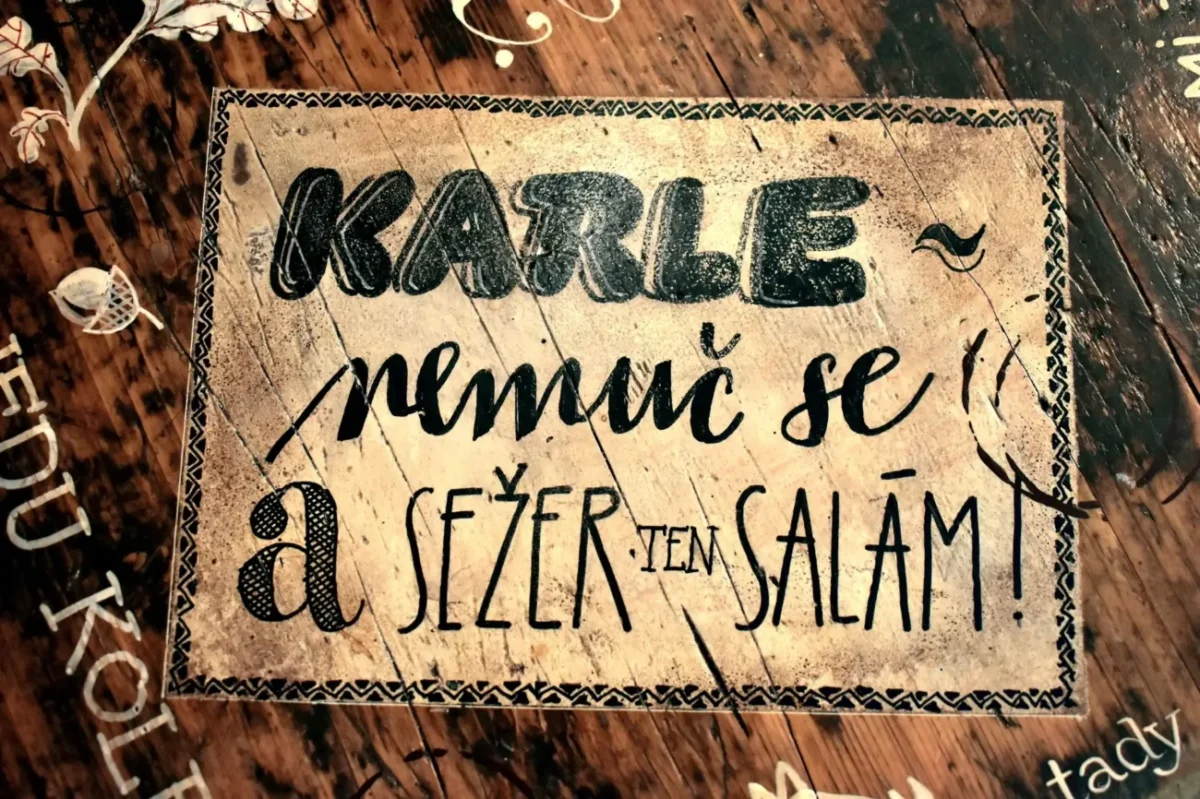 KARLE ~
nemuč se
a SEŽER TEN SALÁM!
JEDU KOLE
tady